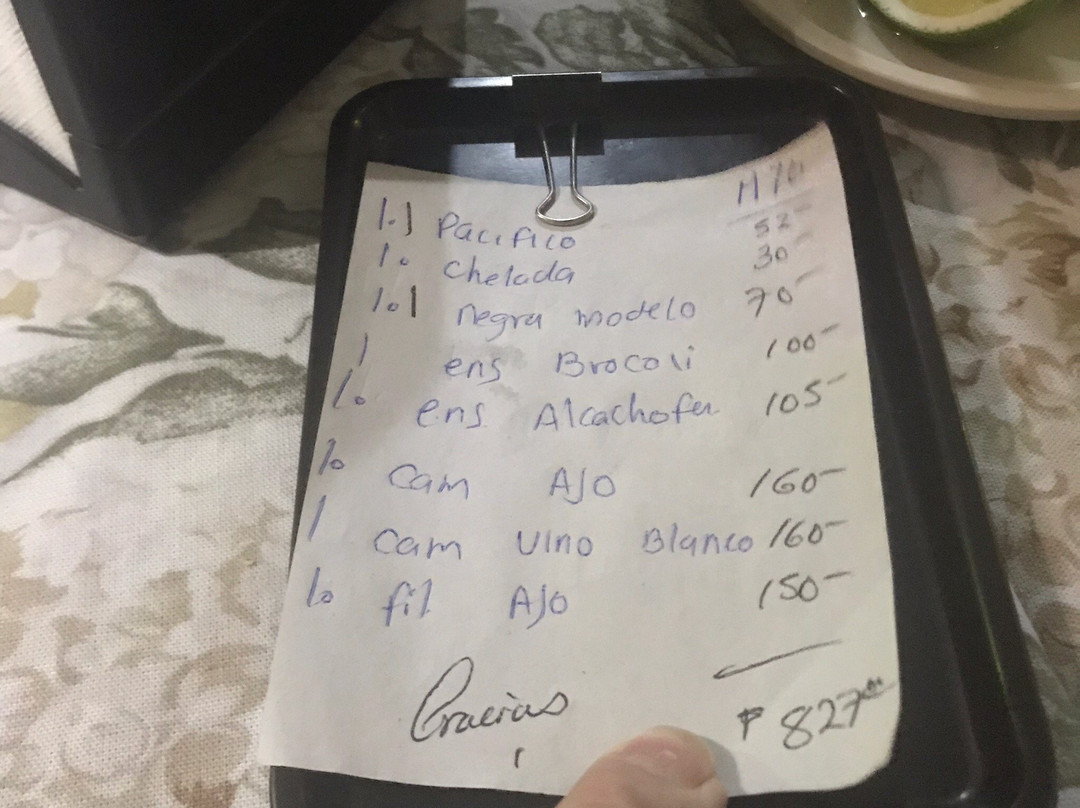 1.1 Pacifico 52-
1. chelada 30-
1.1 negra modelo 70-
1 ens Brocoli 100-
1. ens. Alcachofa 105-
1. cam AJO 160-
1 cam vino Blanco 160-
1. fil AJO 150-
Gracias
$ 827.00